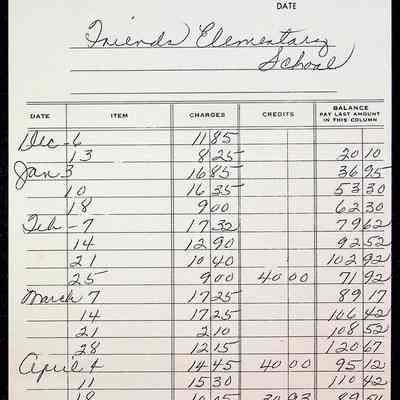 DATE
Friends Elementary
School
DATE ITEM CHARGES CREDITS BALANCE
PAY LAST AMOUNT
IN THIS COLUMN
Dec - 6 11 85
13 8 25 20 10
Jan 3 16 85 36 95
10 16 35 53 30
18 9 00 62 30
Feb - 7 17 32 79 62
14 12 90 92 52
21 10 40 102 92
25 9 00 40 00 71 92
March 7 17 25 89 17
14 17 25 106 42
21 2 10 108 52
28 12 15 120 67
April 4 14 45 40 00 95 12
11 15 30 110 42
18 10 05 30 93 89 54